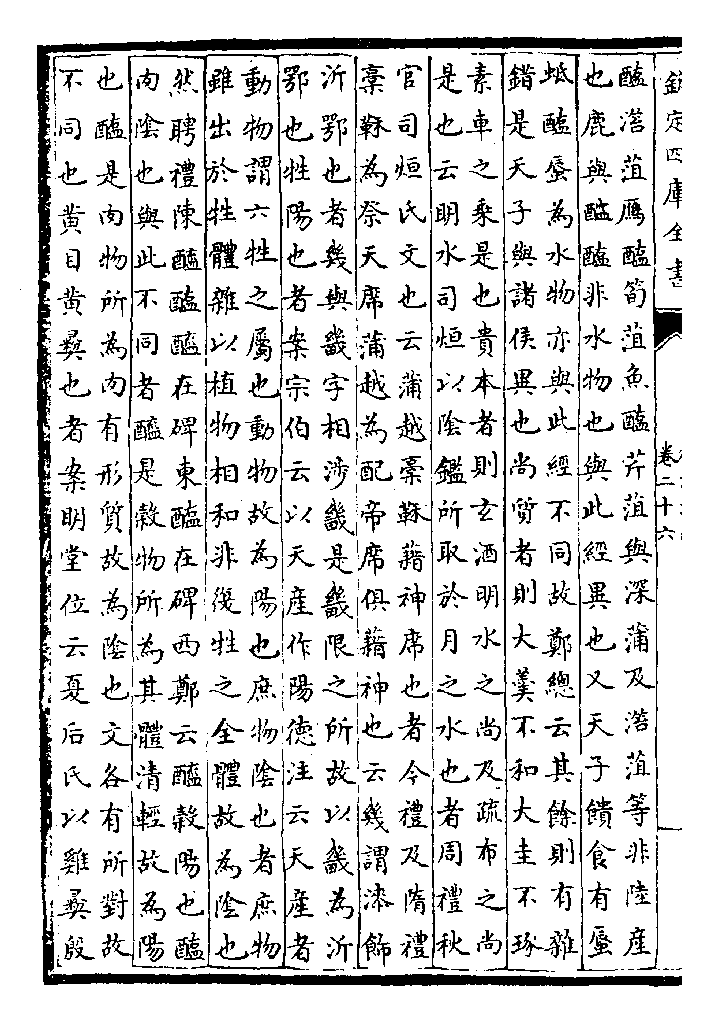 欽定四庫全書
卷二十六
醢湆菹鴈醢筍菹魚醢芹菹與深蒲及湆菹等非陸産
也鹿與醓醢非水物也與此經異也又天子饋食有蜃
蚳醢蜃為水物亦與此經不同故鄭總云其餘則有雜
錯是天子與諸侯異也尚質者則大羮不和大圭不琢
素車之乗是也貴本者則玄酒明水之尚及疏布之尚
是也云明水司烜以陰鑑所取於月之水也者周禮秋
官司烜氏文也云蒲越藁鞂藉神席也者今禮及隋禮
藁鞂為祭天席蒲越為配帝席俱藉神也云幾謂漆飾
沂鄂也者幾與畿字相涉畿是畿限之所故以畿為沂
鄂也牲陽也者案宗伯云以天産作陽德注云天産者
動物謂六牲之屬也動物故為陽也庶物陰也者庶物
雖出於牲體雜以植物相和非復牲之全體故為陰也
然聘禮陳醯醢醯在碑東醢在碑西鄭云醯穀陽也醢
肉陰也與此不同者醯是穀物所為其體清輕故為陽
也醢是肉物所為肉有形質故為陰也文各有所對故
不同也黄目黄彝也者案明堂位云夏后氏以雞彝殷